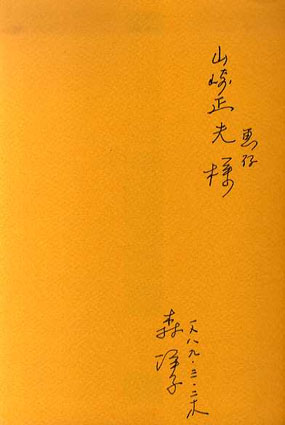 恵存
山崎正夫様
一九八九・三・二木
森洋子